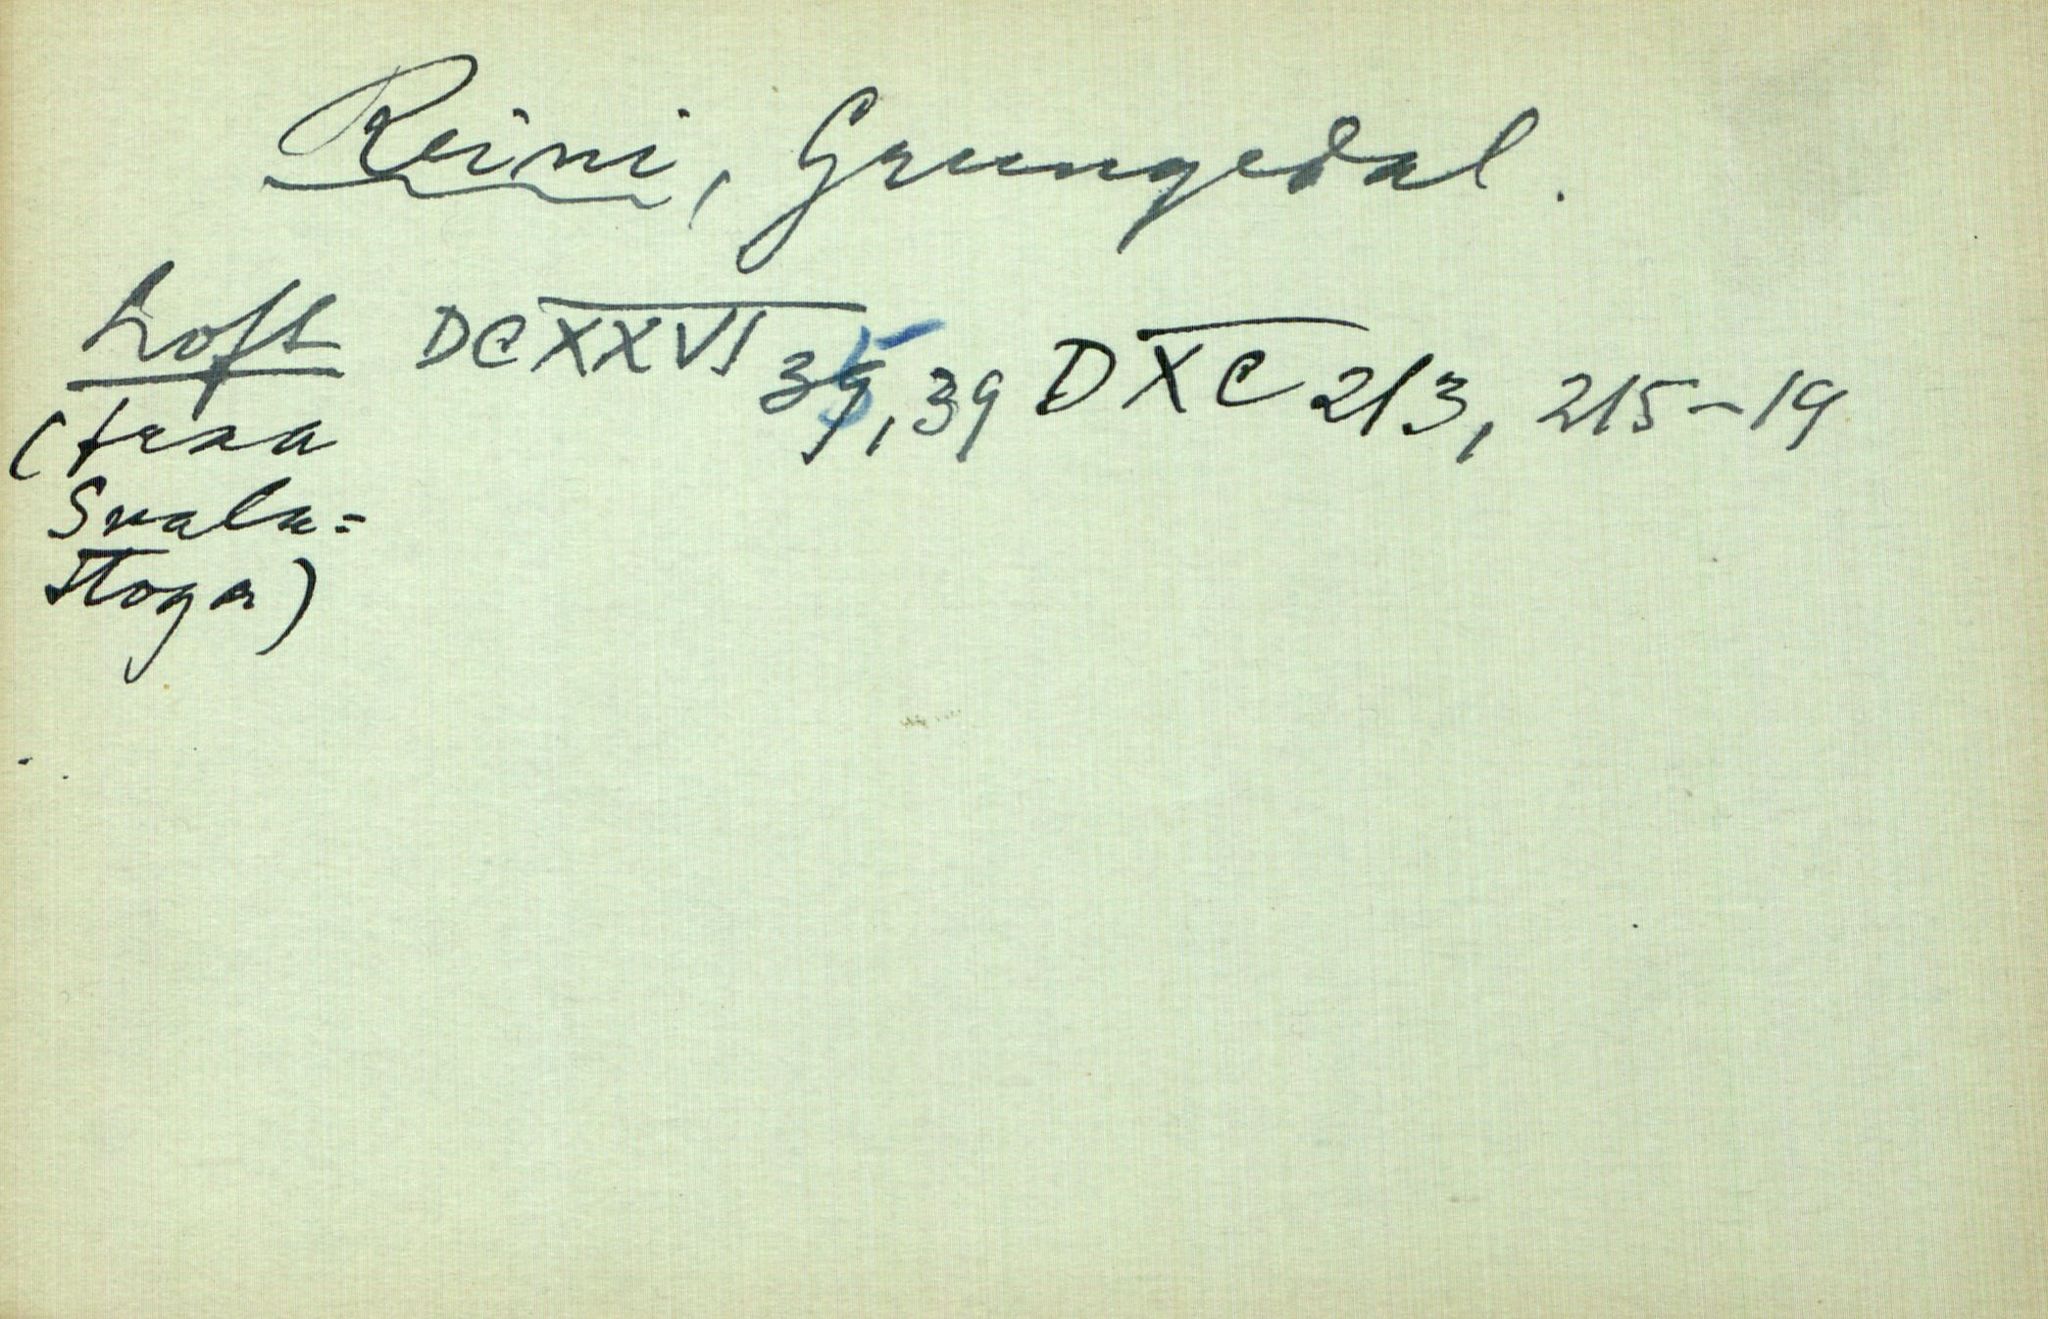 Reini, Grungedal.
Loft DCXXVI 35, 39 DXC 213, 215-19
(fraa
Svalu=
stoga)